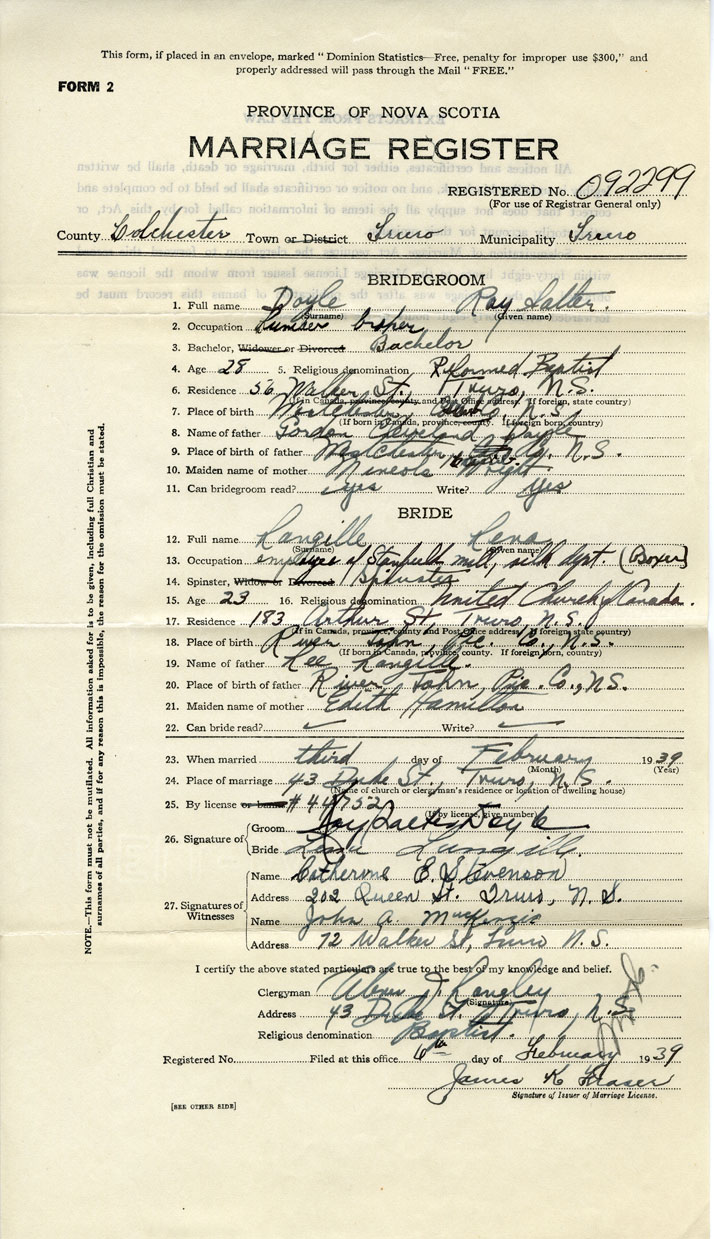 This form, if placed in an envelope, marked "Dominion Statistics—Free, penalty for improper use $300," and
properly addressed will pass through the Mail "FREE."
FORM 2
PROVINCE OF NOVA SCOTIA
MARRIAGE REGISTER
REGISTERED No. 092299
(For use of Registrar General only)
County Colchester Town or District Truro Municipality Truro
BRIDEGROOM
1. Full name Doyle Ray Salter.
(Surname) (Given name)
2. Occupation Lumber
3. Bachelor, Widower or Divorced Bachelor
4. Age 28 5. Religious denomination Reformed Baptist
6. Residence 56 Walker St., Truro, N.S.
(If in Canada, province, county and Post Office address. If foreign, state country)
7. Place of birth Westchester, N.S.
(If born in Canada, province, county. If foreign born, country)
8. Name of father Gordon Cleveland Doyle
9. Place of birth of father Westchester, N.S.
10. Maiden name of mother Mineola Wright
11. Can bridegroom read? yes Write? Yes
BRIDE
12. Full name Langille Lena
(Surname) (Given name)
13. Occupation employee of Stanfield mill, silk dept. (Boxer)
14. Spinster, Widow or Divorced Spinster
15. Age 23 16. Religious denomination United Church of Canada.
17. Residence 183 Arthur St, Truro, N.S.
(If in Canada, province, county and Post Office address. If foreign, state country)
18. Place of birth River John, Pic. Co., N.S.
(If born in Canada, province, county. If foreign born, country)
19. Name of father Lee Langille.
20. Place of birth of father River John, Pic. Co., N.S.
21. Maiden name of mother Edith Hamilton
22. Can bride read? ✓ Write? ✓
23. When married third day of February 1939
(Month) (Year)
24. Place of marriage 43 Duke St., Truro, N.S.
(Name of church or clergyman's residence or location of dwelling house)
25. By license or banns # 44752
(If by license, give number)
26. Signature of Groom Ray Salter Doyle
Bride Lena Langille.
27. Signatures of Witnesses
Name Catherine E. Stevenson
Address 202 Queen St. Truro, N.S.
Name John A. MacKenzie
Address 72 Walker St, Truro N.S.
I certify the above stated particulars are true to the best of my knowledge and belief.
Clergyman Abner J. Langley
(Signature)
Address 43 Duke St. Truro, N.S.
Religious denomination Baptist.
Registered No. Filed at this office 6th day of February 1939
James K Fraser
Signature of Issuer of Marriage License.
[SEE OTHER SIDE]
NOTE.—This form must not be mutilated. All information asked for is to be given, including full Christian and
surnames of all parties, and if for any reason this is impossible, the reason for the omission must be stated.